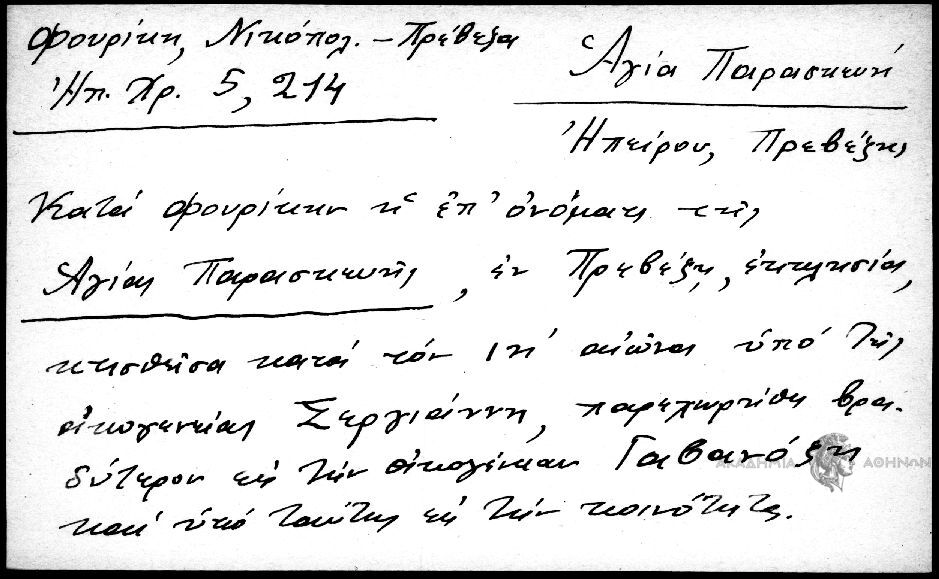 Φουρίκη, Νικόπολ. – Πρέβεζα
Ἠπ. Χρ. 5, 214
Ἁγία Παρασκευή
Ἠπείρου, Πρεβέζης
Κατά Φουρίκην ἡ ἐπ' ὀνόματι τῆς
Ἁγίας Παρασκευῆς, ἐν Πρεβέζῃ, ἐκκλησία,
κτισθεῖσα κατά τόν ιη' αἰῶνα ὑπό τῆς
οἰκογενείας Σεργιάννη, παρεχωρήθη βρα-
δύτερον εἰς τήν οἰκογένειαν Γαβανόζη
καί ὑπό ταύτης εἰς τήν κοινότητα.
ΑΚΑΔΗΜΙΑ ΑΘΗΝΩΝ